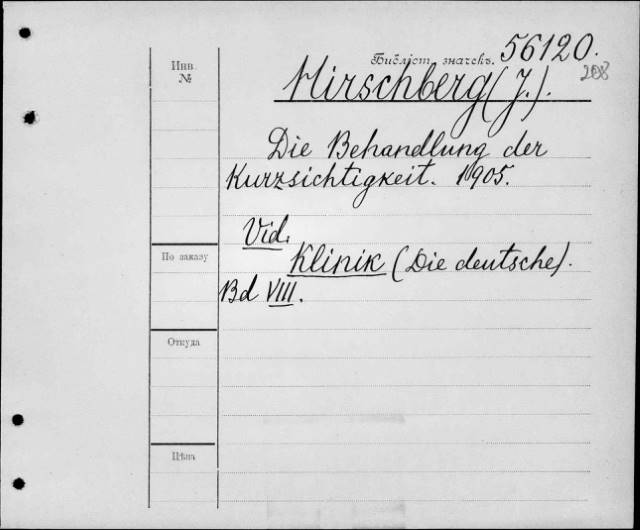 56120.
Инв. №
Библіот. значекъ.
208
Hirschberg (J.).
Die Behandlung der
Kurzsichtigkeit. 1905.
Vid.
По заказу
Klinik (Die deutsche).
Bd VIII.
Откуда
Цѣна